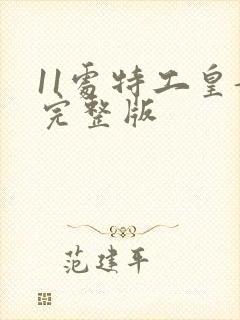 11處特工皇
完整版
范建平